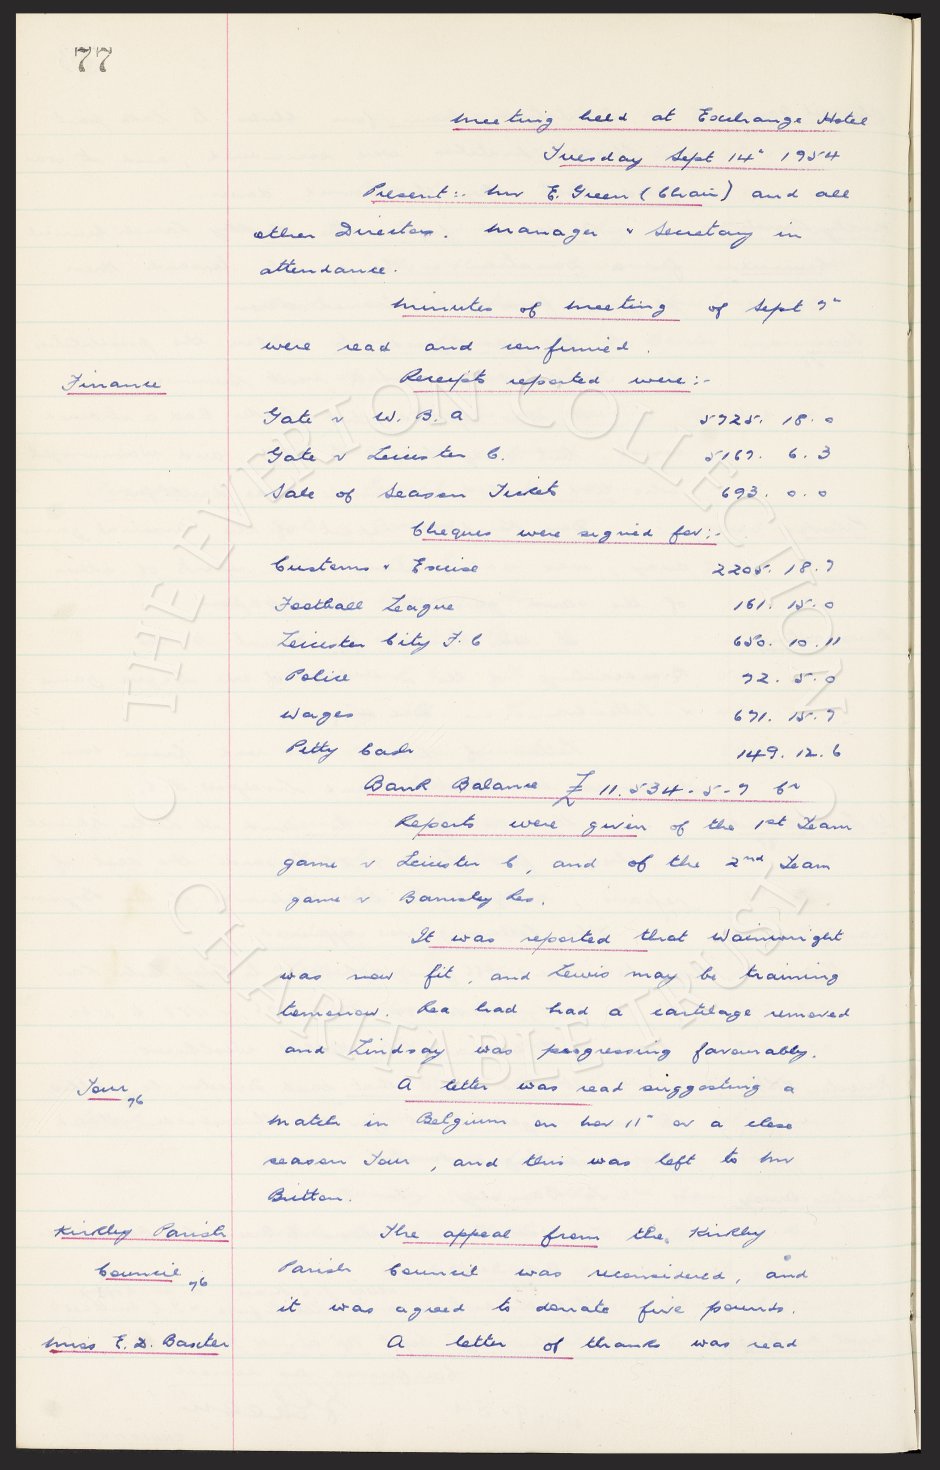 77
Meeting held at Exchange Hotel
Tuesday Sept 14" 1954
Present:- Mr E. Green (Chair) and all
other Directors. Manager & Secretary in
attendance.
Minutes of meeting of Sept 7"
were read and confirmed.
Finance
Receipts reported were:-
Gate v W. B. A 5725. 18. 0
Gate v Leicester C. 5167. 6. 3
Sale of Season Tickets 693. 0. 0
Cheques were signed for:-
Customs & Excise 2205. 18. 7
Football League 161. 15. 0
Leicester City F. C 650. 10. 11
Police 72. 5. 0
Wages 671. 15. 7
Petty Cash 149. 12. 6
Bank Balance £ 11.534 - 5 - 7 Cr
Reports were given of the 1st Team
game v Leicester C, and of the 2nd Team
game v Barnsley Res.
It was reported that Wainwright
was now fit, and Lewis may be training
tomorrow. Rea had had a cartilage removed
and Lindsay was progressing favourably.
Tour 76
A letter was read suggesting a
match in Belgium on Nov 11" or a close
season Tour, and this was left to Mr
Britton.
Kirkby Parish
Council 76
The appeal from the Kirkby
Parish Council was reconsidered, and
it was agreed to donate five pounds.
Miss E. D. Baxter
A letter of thanks was read
© THE EVERTON COLLECTION
CHARITABLE TRUST